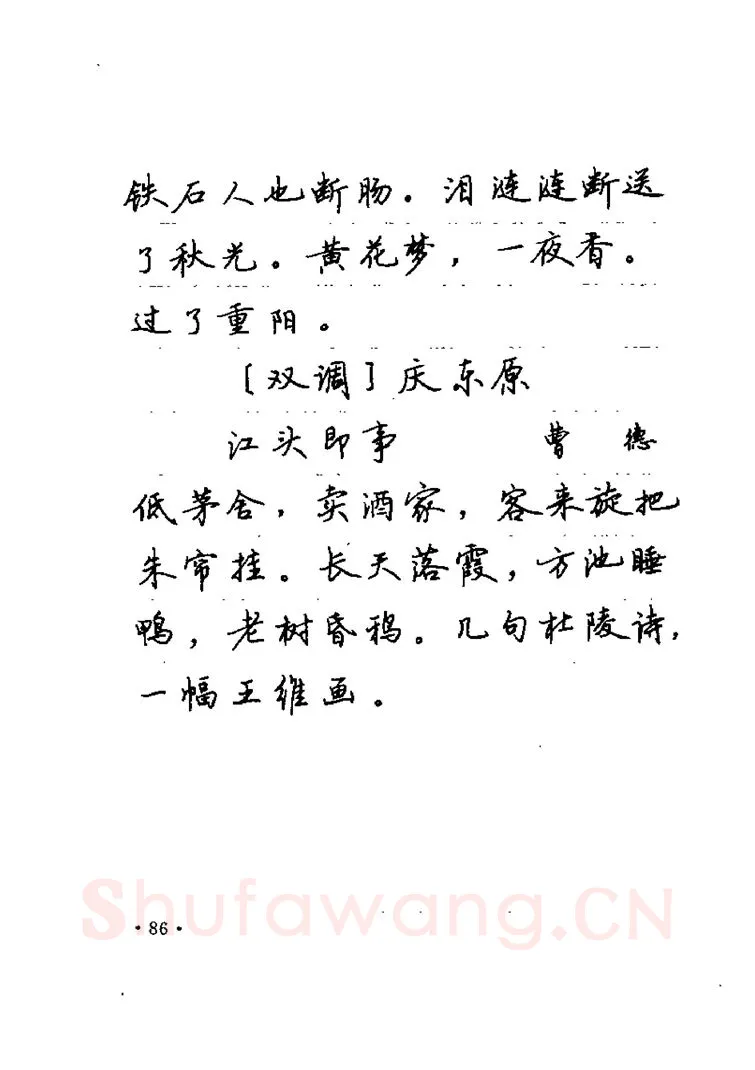 铁石人也断肠。泪涟涟断送
了秋光。黄花梦，一夜香。
过了重阳。
[双调]庆东原
江头即事 曹德
低茅舍，卖酒家，客来旋把
朱帘挂。长天落霞，方池睡
鸭，老树昏鸦。几句杜陵诗，
一幅王维画。
Shufawang.CN
·86·